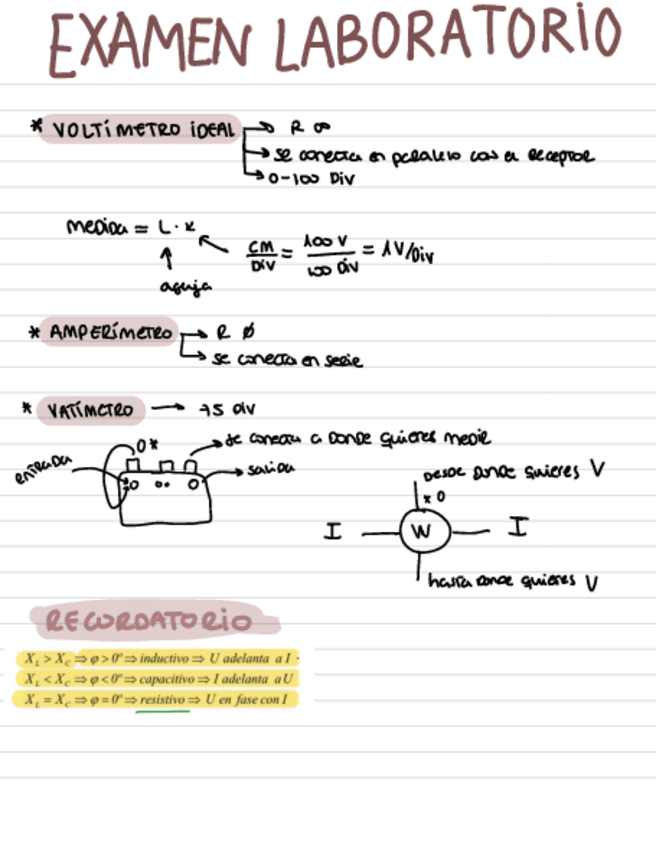 EXAMEN LABORATORIO
* VOLTÍMETRO IDEAL → R ∞
→ se conecta en paralelo con el receptor
→ 0-100 Div
medida = L · K
CM/DIV = 100 V/100 Div = 1V/Div
aguja
* AMPERÍMETRO → R Ø
→ se conecta en serie
* VATÍMETRO → 75 div
0* → se conecta a donde quieres medir
entrada → salida
desde donde quieres V
* 0
I W I
hasta donde quieres V
RECORDATORIO
X_L > X_C ⇒ φ > 0º ⇒ inductivo ⇒ U adelanta a I ·
X_L < X_C ⇒ φ < 0º ⇒ capacitivo ⇒ I adelanta a U
X_L = X_C ⇒ φ = 0º ⇒ resistivo ⇒ U en fase con I